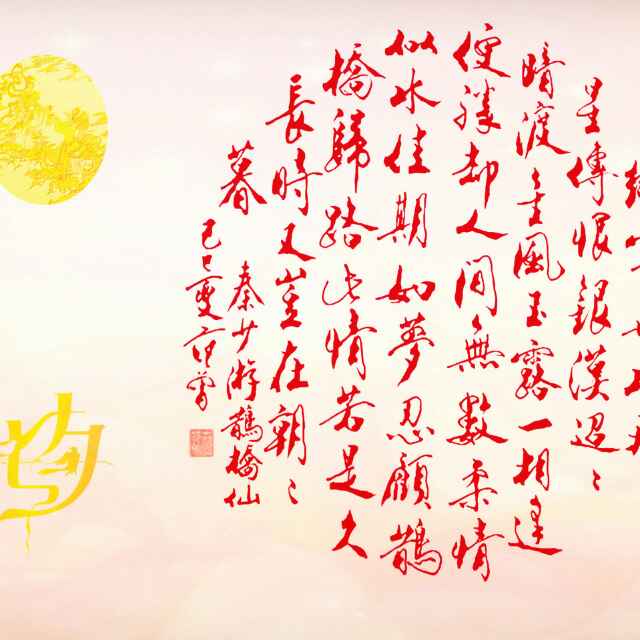 星傳恨銀漢迢々
暗渡金風玉露一相逢
便勝却人間無數柔情
似水佳期如夢忍顧鵲
橋歸路此情若是久
長時又豈在朝々
暮
秦少游鵲橋仙
己巳夏范曾